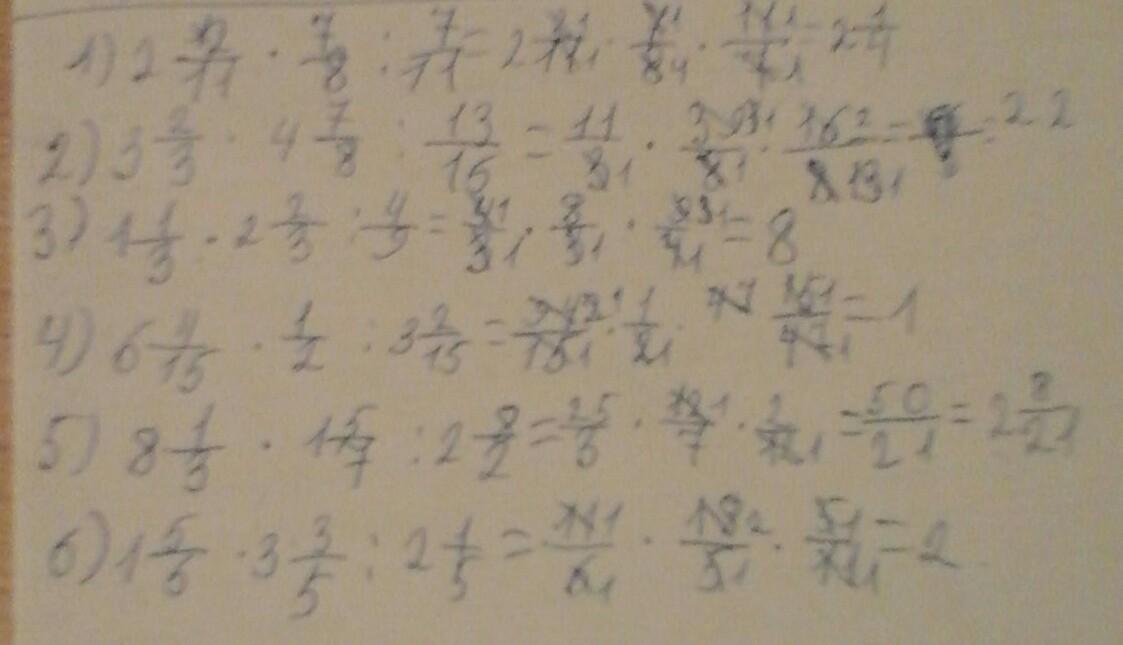 1) 2 2/11 · 7/8 : 7/11 = 2 2/11 · 7/8 · 11/7 = 2 1/4
2) 3 2/3 · 4 7/8 : 13/16 = 11/3 · 39/8 · 16/13 = 22
3) 1 1/3 · 2 2/3 : 4/9 = 4/3 · 8/3 · 9/4 = 8
4) 6 4/15 · 1/2 : 3 2/15 = 94/15 · 1/2 · 15/47 = 1
5) 8 1/3 · 1 5/7 : 2 8/2 = 25/3 · 12/7 · 2/12 = 50/21 = 2 8/21
6) 1 5/6 · 3 3/5 : 2 1/5 = 11/6 · 18/5 · 5/11 = 2